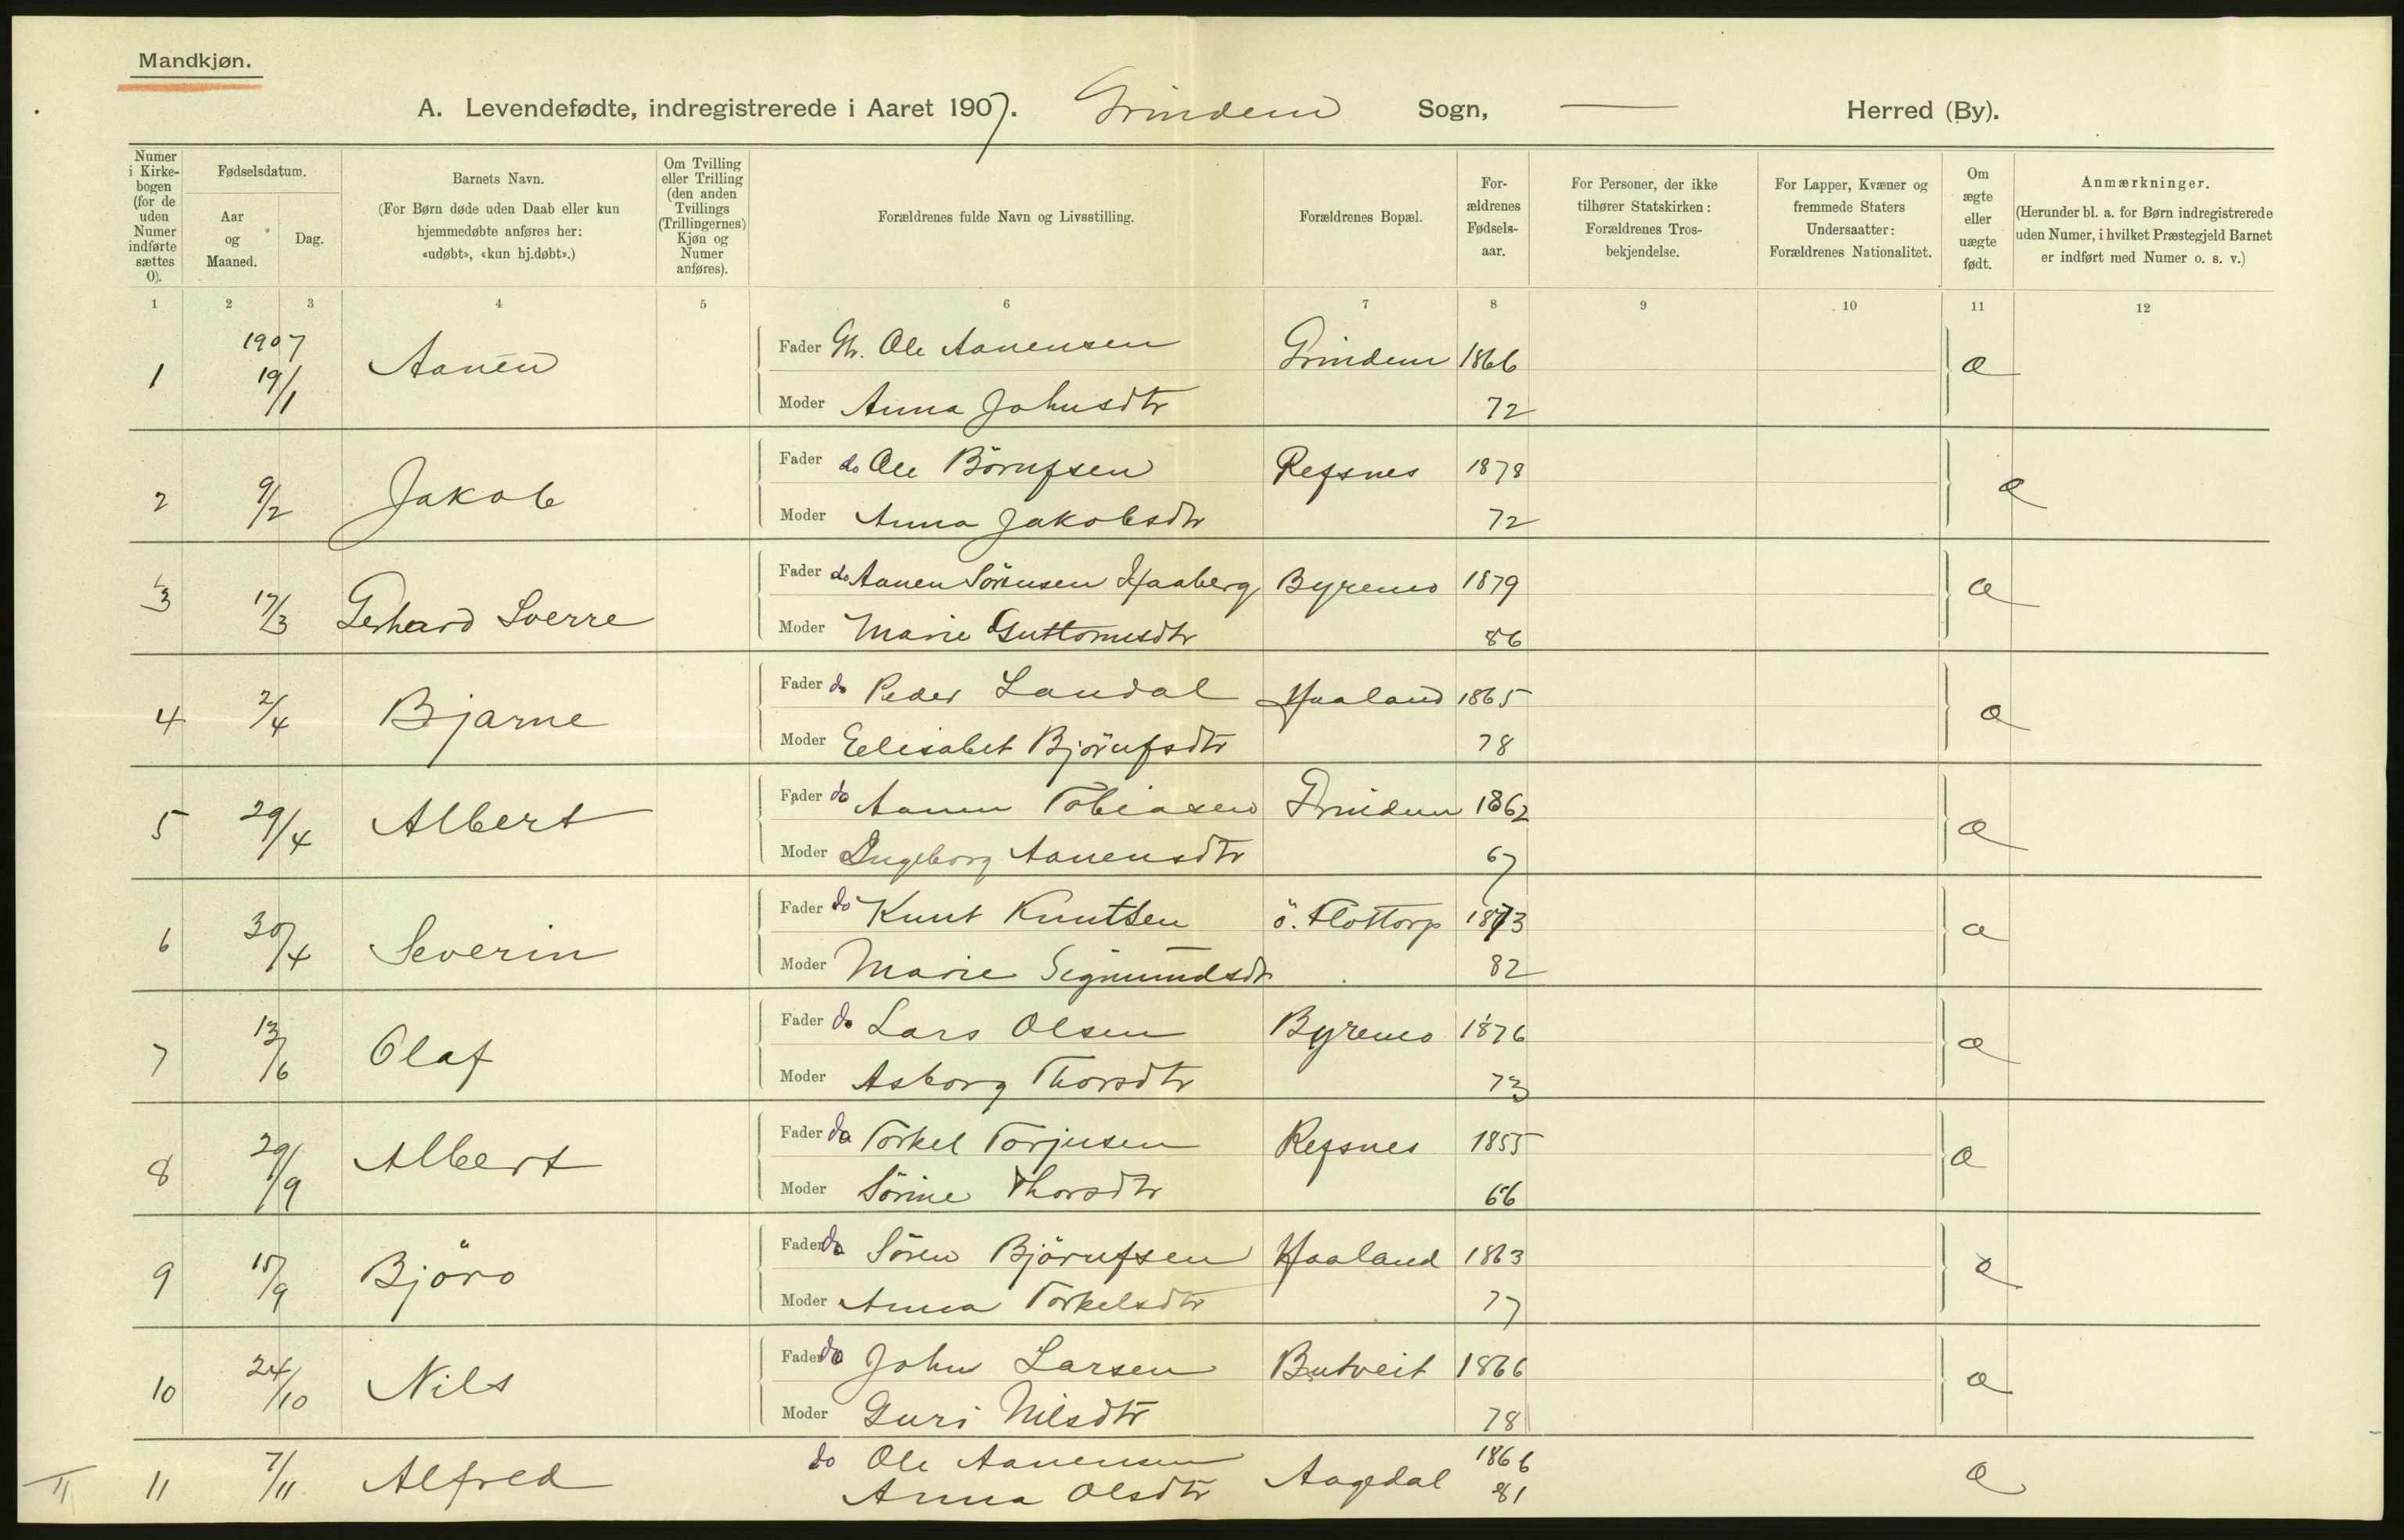 Mandkjøn.
A. Levendefødte, indregistrerede i Aaret 1907. Grindem Sogn, — Herred (By).
Numer i Kirkebogen (for de uden Numer indførte sættes 0).
Fødselsdatum.
Aar og Maaned.
Dag.
Barnets Navn.
(For Børn døde uden Daab eller kun hjemmedøbte anføres her: «udøbt», «kun hj.døbt».)
Om Tvilling eller Trilling (den anden Tvillings (Trillingernes) Kjøn og Numer anføres).
Forældrenes fulde Navn og Livsstilling.
Forældrenes Bopæl.
For-ældrenes Fødsels-aar.
For Personer, der ikke tilhører Statskirken: Forældrenes Tros-bekjendelse.
For Lapper, Kvæner og fremmede Staters Undersaatter: Forældrenes Nationalitet.
Om ægte eller uægte født.
Anmærkninger.
(Herunder bl. a. for Børn indregistrerede uden Numer, i hvilket Præstegjeld Barnet er indført med Numer o. s. v.)
1 2 3 4 5 6 7 8 9 10 11 12
1907
1 19/1 Aanen Fader Gr. Ole Aanensen Grindem 1866 æ
Moder Anna Johnsdtr 72
2 9/2 Jakob Fader do Ole Börufsen Refsnes 1878 æ
Moder Anna Jakobsdtr 72
3 17/3 Gerhard Sverre Fader do Aanen Sörensen Haaberg Byremo 1879 æ
Moder Marie Guttormsdtr 86
4 2/4 Bjarne Fader do Peder Landal Haaland 1865 æ
Moder Elisabet Björufsdtr 78
5 29/4 Albert Fader do Aanen Tobiasen Grindem 1862 æ
Moder Ingeborg Aanensdtr 67
6 30/4 Severin Fader do Knut Knutsen ö. Flottorp 1873 æ
Moder Marie Sigmundsdtr 82
7 13/6 Olaf Fader do Lars Olsen Byremo 1876 æ
Moder Asborg Thorsdtr 73
8 29/9 Albert Fader do Torkel Torjusen Refsnes 1855 æ
Moder Sörine Thorsdtr 66
9 15/9 Björo Fader do Sören Björufsen Haaland 1863 æ
Moder Anna Torkelsdtr 77
10 24/10 Nils Fader do John Larsen Butveit 1866 æ
Moder Guri Nilsdtr 78
11 7/11 Alfred do Ole Aanensen Aagedal 1866 æ
Anna Olsdtr 81
11